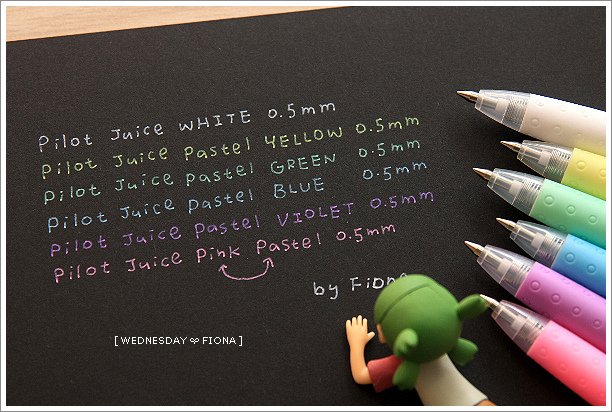 Pilot Juice WHITE 0.5mm
Pilot Juice Pastel YELLOW 0.5mm
Pilot Juice Pastel GREEN 0.5mm
Pilot Juice Pastel BLUE 0.5mm
Pilot Juice Pastel VIOLET 0.5mm
Pilot Juice Pink Pastel 0.5mm
by Fiona
[WEDNESDAY ❤ FIONA]